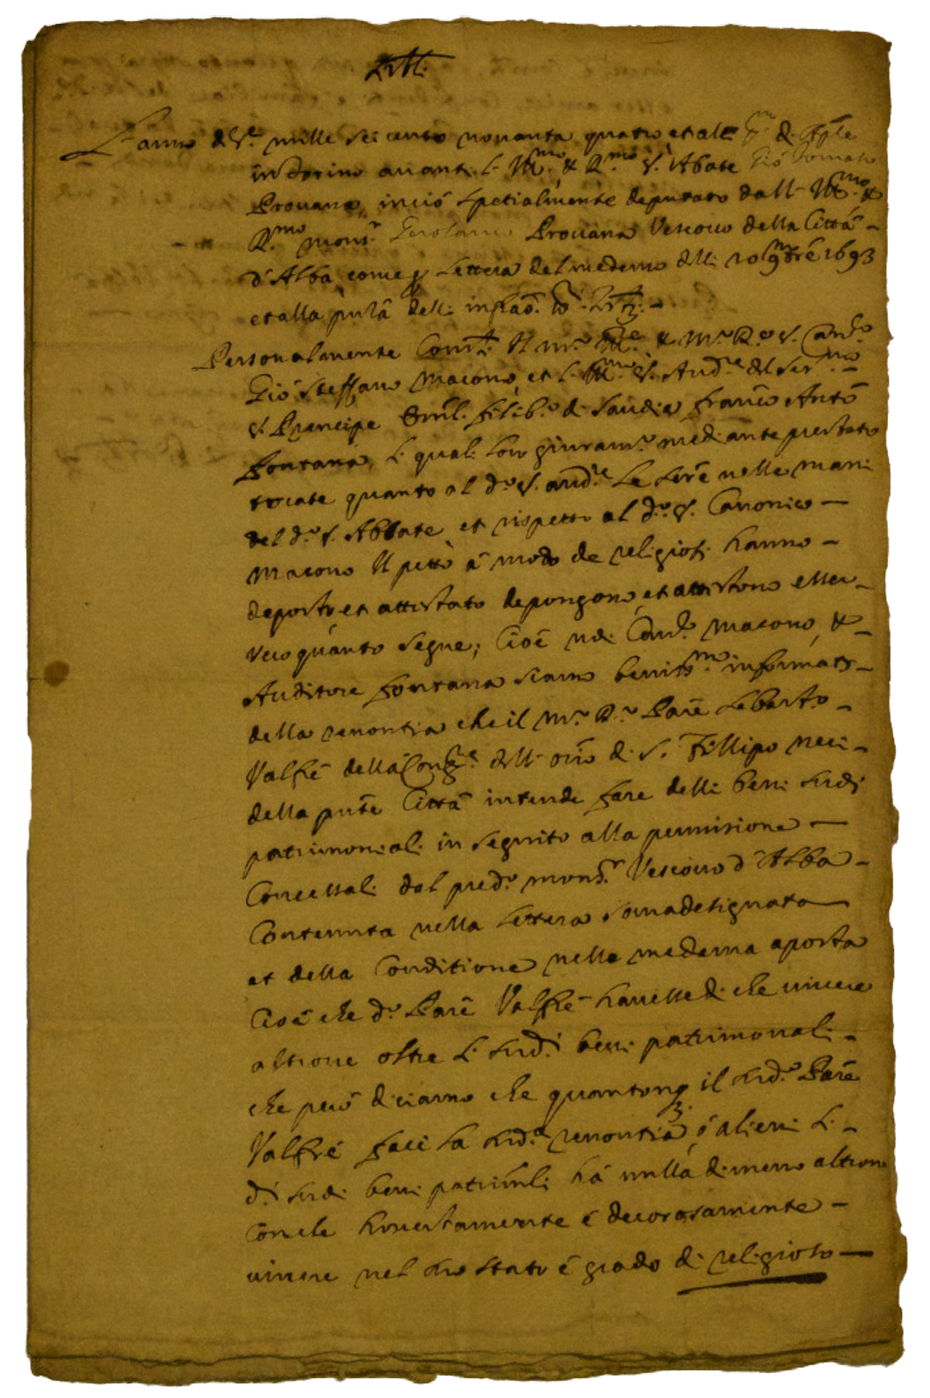 Test.
L'anno del Sig.e mille sei cento novanta quatro et alli di Aple
in Torino avanti l' Ill.mo & R.mo S. Abate Gio Tomaso
Provana, in ciò spetialmente deputato dall' Ill.mo &
R.mo Mons.r Gerolamo Provana Vescovo della Città –
d'Alba come p lettera del medemo delli 20 9mbre 1693
et alla pntâ delli infrad.
Personalmente il m.to & M.to R.do S. Can.co
Gio Steffano Macono et l' Ill.mo S. Aud.re del Ser.mo –
S. Prencipe Em.l Filib.o di Savoia Franco Anto
Fontana, li quali loro giuram.to mediante prestato
toccate quanto al d.o S. aud.re le scre nelle mani
del d.o S. Abbate et rispetto al d.o S. Canonico –
Macono il petto à modo de religiosi hanno –
deposto et attestato depongono, et attestono esser –
vero quanto segue; Cioè noi Can.co Macono, & –
Auditore Fontana siamo beniss.mo informati –
della renontia che il M.to R.do Pare Sebast.o –
Valfrè della Cong.ne dell' orio di S. Fillipo neri –
della pnte Città intende fare delli beni suoi
patrimoniali in seguito alla permissione –
Concessali dal pred.o mons.r Vescovo d'Alba –
Contenuta nella lettera sovradesignata –
et della Conditione nella medema aposta
Cioè che d.o Pare Valfrè havesse di che vivere
altrove oltre li sud.i beni patrimoniali –
che però diciamo che quantonq il sud.o Pare
Valfrè facci la sud.a renontia, ò alieni li –
d.i suoi beni patrimli hà nulla di meno altrove
Con che honestamente è decorosamente –
vivere nel suo stato è grado di religioso –